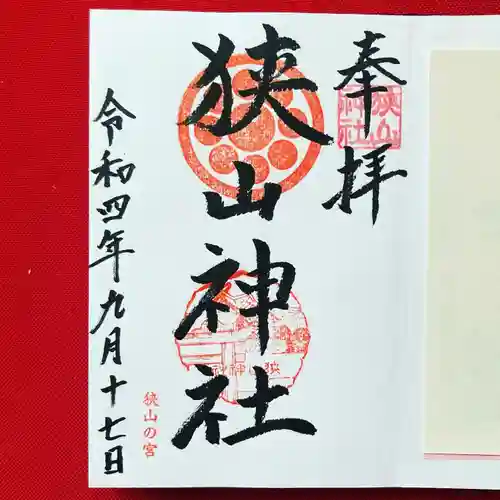 奉拝
狭山神社
狭山神社
狭山神社
令和四年九月十七日
狭山の宮